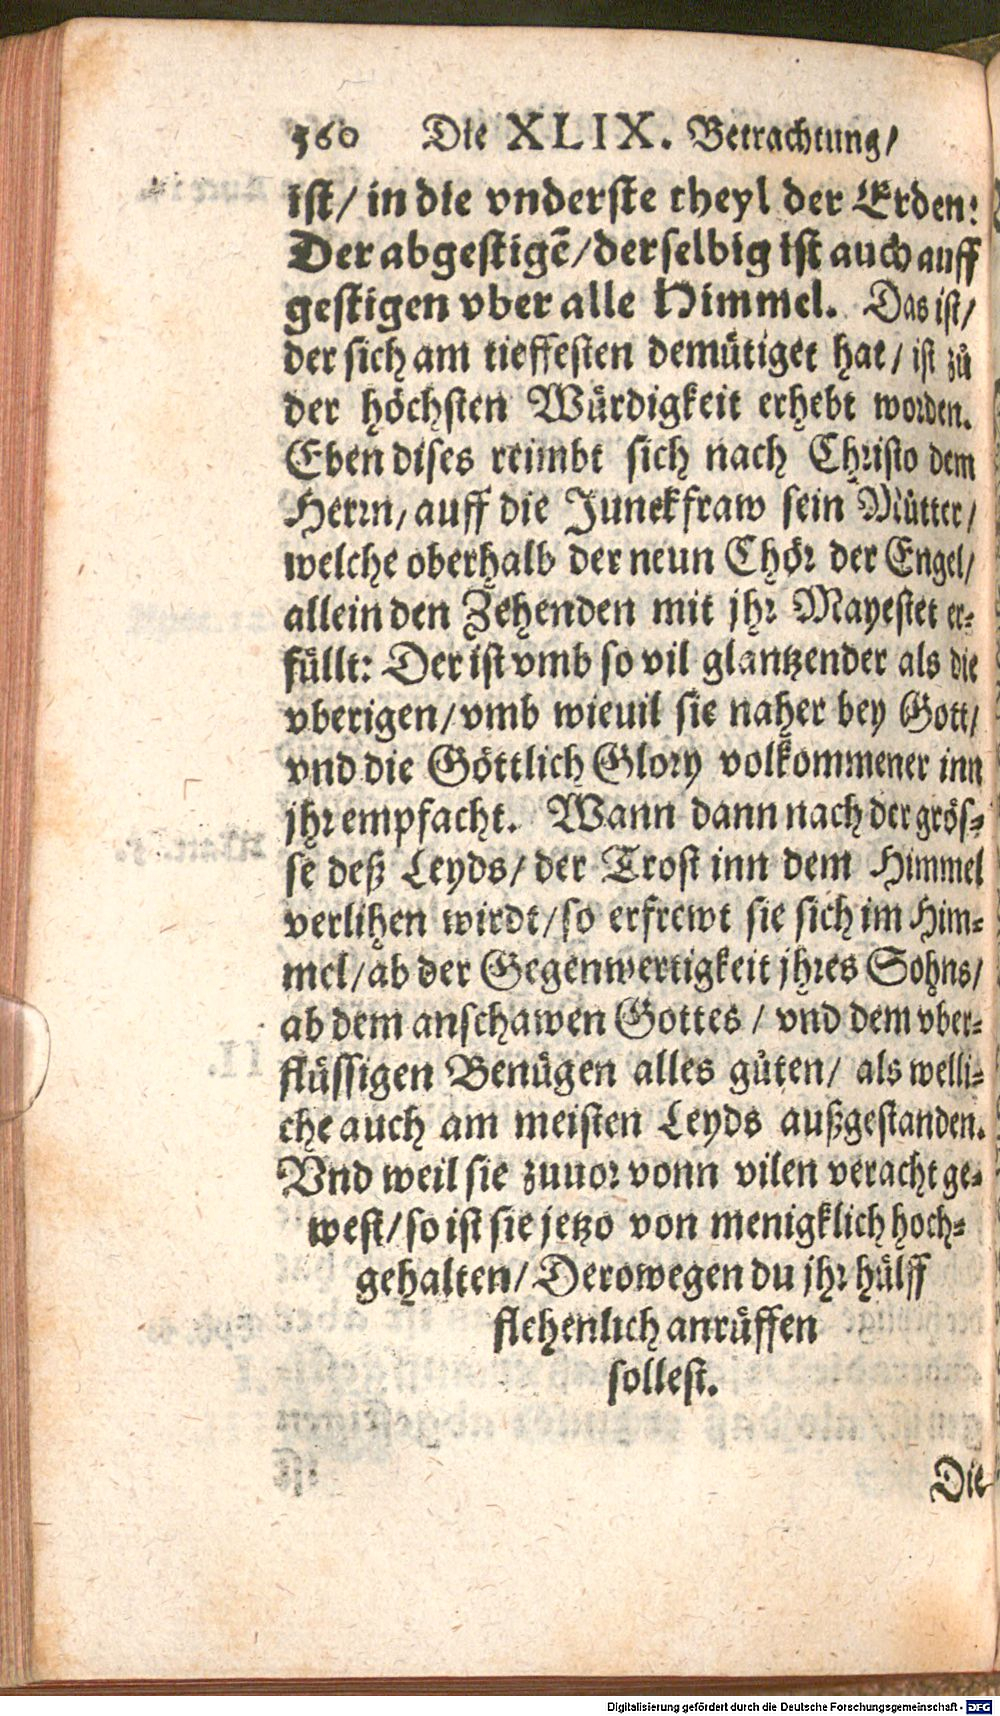 560 Die XLIX. Betrachtung/
ist/ in die vnderste theyl der Erden:
Der abgestigē/ derselbig ist auch auff
gestigen vber alle Himmel. Das ist/
der sich am tieffesten demütiget hat/ ist zů
der höchsten Würdigkeit erhebt worden.
Eben dises reimbt sich nach Christo dem
Herrn/ auff die Junckfraw sein Můtter/
welche oberhalb der neun Chör der Engel/
allein den Zehenden mit jhr Mayestet er-
füllt: Der ist vmb so vil glantzender als die
vberigen/ vmb wieuil sie naher bey Gott/
vnd die Göttlich Glory volkommener inn
jhr empfacht. Wann dann nach der grös-
se deß Leyds/ der Trost inn dem Himmel
verlihen wirdt/ so erfrewt sie sich im Him-
mel/ ab der Gegenwertigkeit jhres Sohns/
ab dem anschawen Gottes / vnd dem vber-
flüssigen Benügen alles gůten/ als welli-
che auch am meisten Leyds außgestanden.
Vnd weil sie zuuor vonn vilen veracht ge-
west/ so ist sie jetzo von menigklich hoch-
gehalten/ Derowegen du jhr hülff
flehenlich anrüffen
sollest.
Die
Digitalisierung gefördert durch die Deutsche Forschungsgemeinschaft - DFG